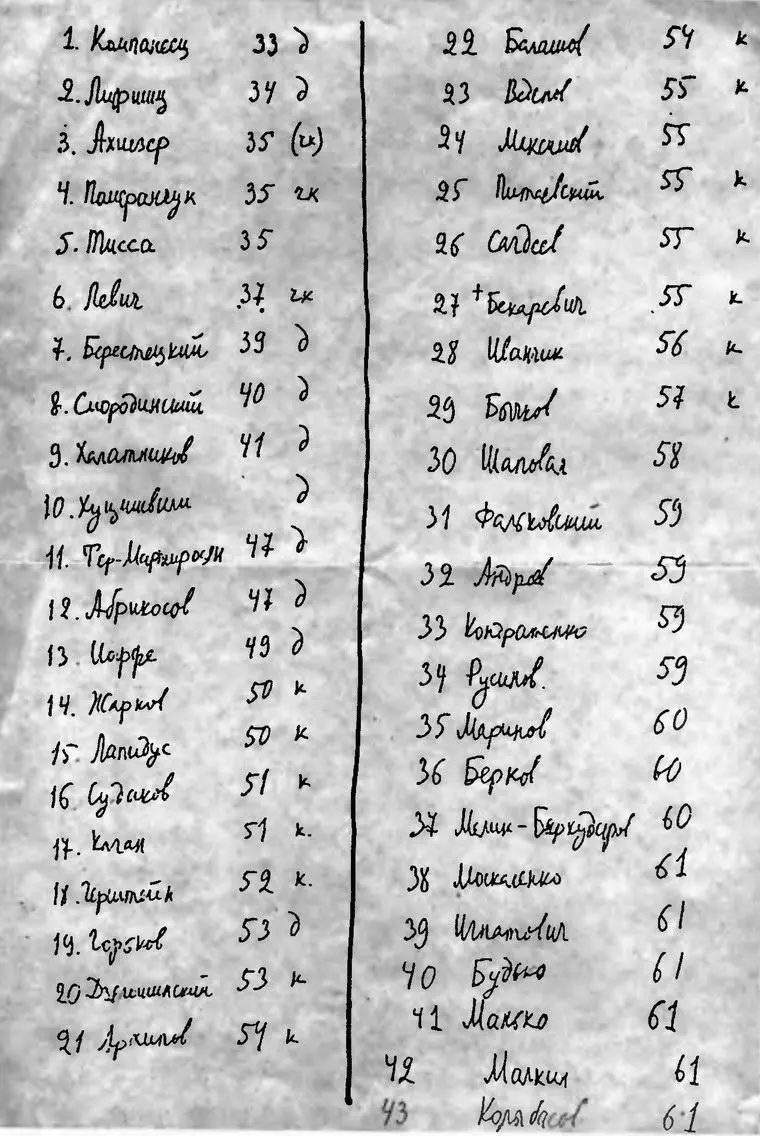 1. Компанеец 33 д
2. Лифшиц 34 д
3. Ахиезер 35 (чк)
4. Померанчук 35 чк
5. Тисса 35
6. Левич 37 чк
7. Берестецкий 39 д
8. Смородинский 40 д
9. Халатников 41 д
10. Хуцишвили д
11. Тер-Мартиросян 47 д
12. Абрикосов 47 д
13. Иоффе 49 д
14. Жарков 50 к
15. Лапидус 50 к
16 Судаков 51 к
17. Каган 51 к.
18. Герштейн 52 к.
19. Горьков 53 д
20 Дзялошинский 53 к
21 Архипов 54 к
22 Балашов 54 к
23 Веденов 55 к
24 Максимов 55
25 Питаевский 55 к
26 Сагдеев 55 к
27 + Бекаревич 55 к
28 Иванчик 56 к
29 Бычков 57 к
30 Шаповал 58
31 Фальковский 59
32 Андреев 59
33 Кондратенко 59
34 Русинов. 59
35 Маринов 60
36 Берков 60
37 Мелик-Бархударов 60
38 Москаленко 61
39 Игнатович 61
40 Будько 61
41 Манько 61
42 Малкин 61
43 Колыбасов 61